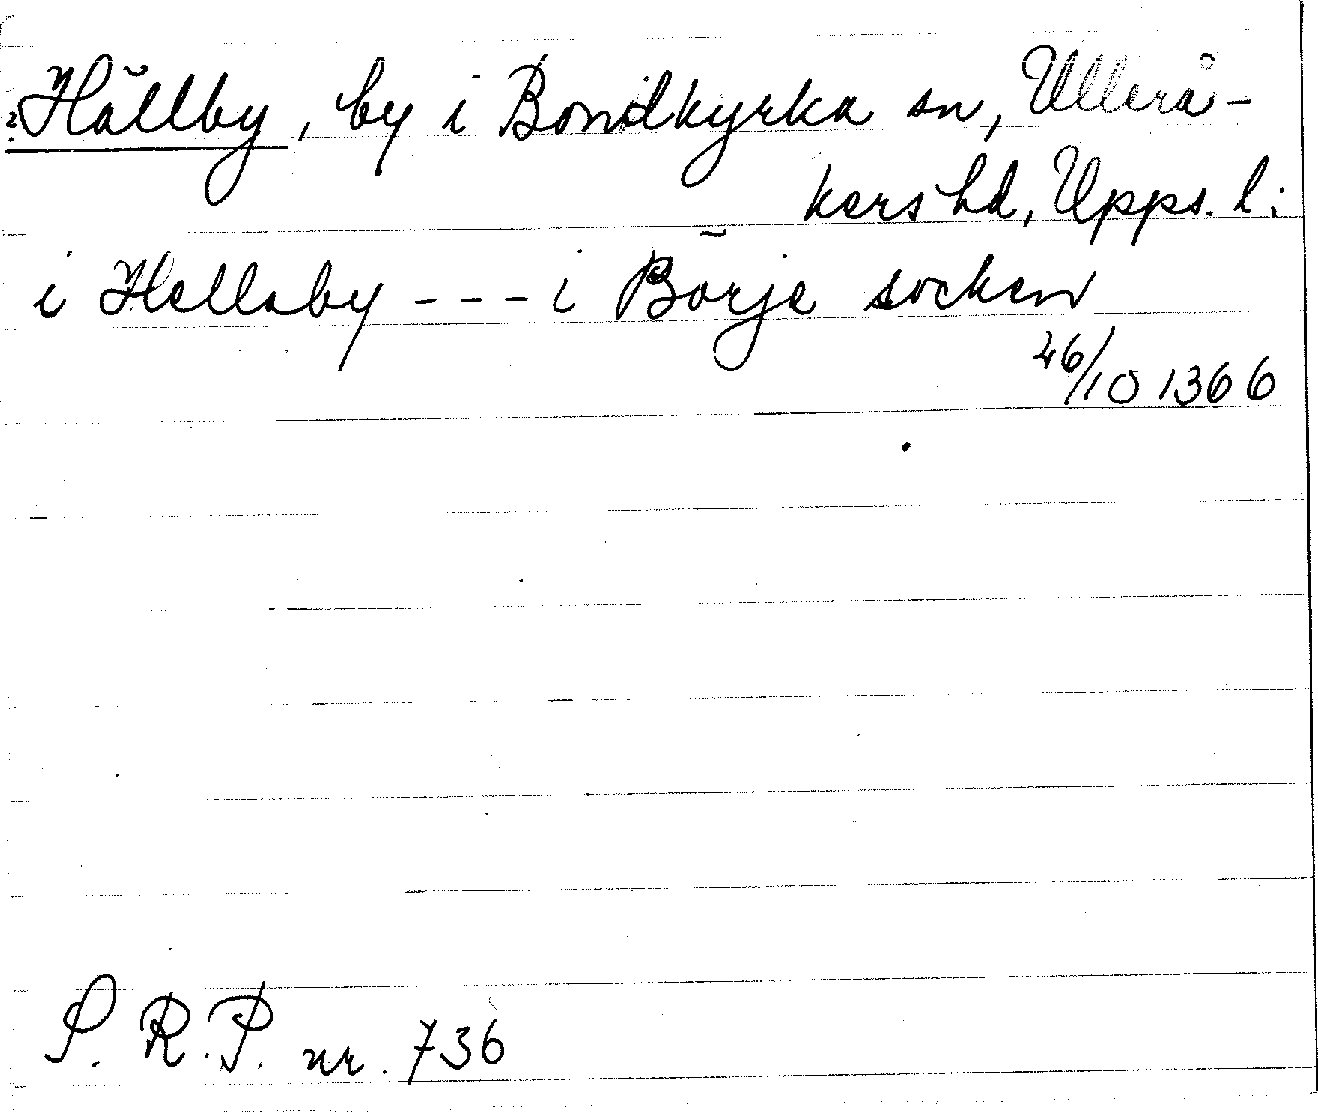 ?Hällby, by i Bondkyrka sn, Ullerå-
kers hd, Upps. l:
i Hellaby --- i Börje socken
26/10 1366
S. R. P. nr. 736